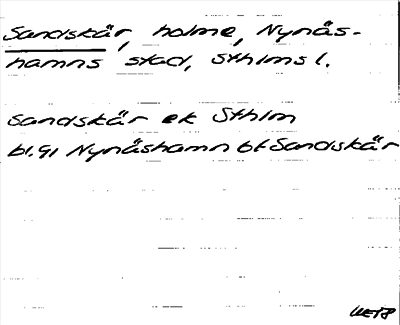 Sandskär, holme, Nynäs-
hamns stad, Sthlms l.
Sandskär ek Sthlm
bl. 91 Nynäshamn bt Sandskär